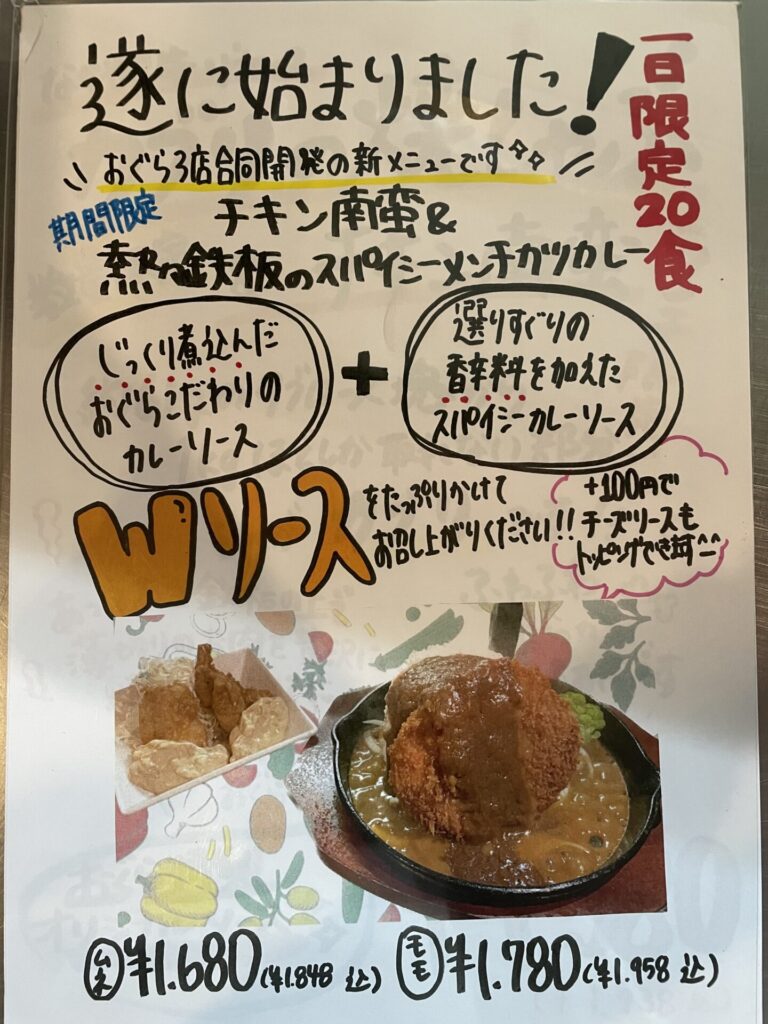 遂に始まりました!
一日限定20食
おぐら3店合同開発の新メニューです
期間限定
チキン南蛮&
熱々鉄板のスパイシーメンチカツカレー
じっくり煮込んだ
おぐらこだわりの
カレーソース
+
選りすぐりの
香辛料を加えた
スパイシーカレーソース
Wソース
をたっぷりかけて
お召し上がりください!!
+100円で
チーズソースも
トッピングできます^^
ムネ ¥1.680(¥1.848 込)
モモ ¥1.780(¥1.958 込)